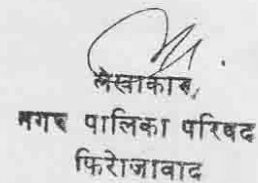 लेखाकार,
नगर पालिका परिषद
फिरोजाबाद